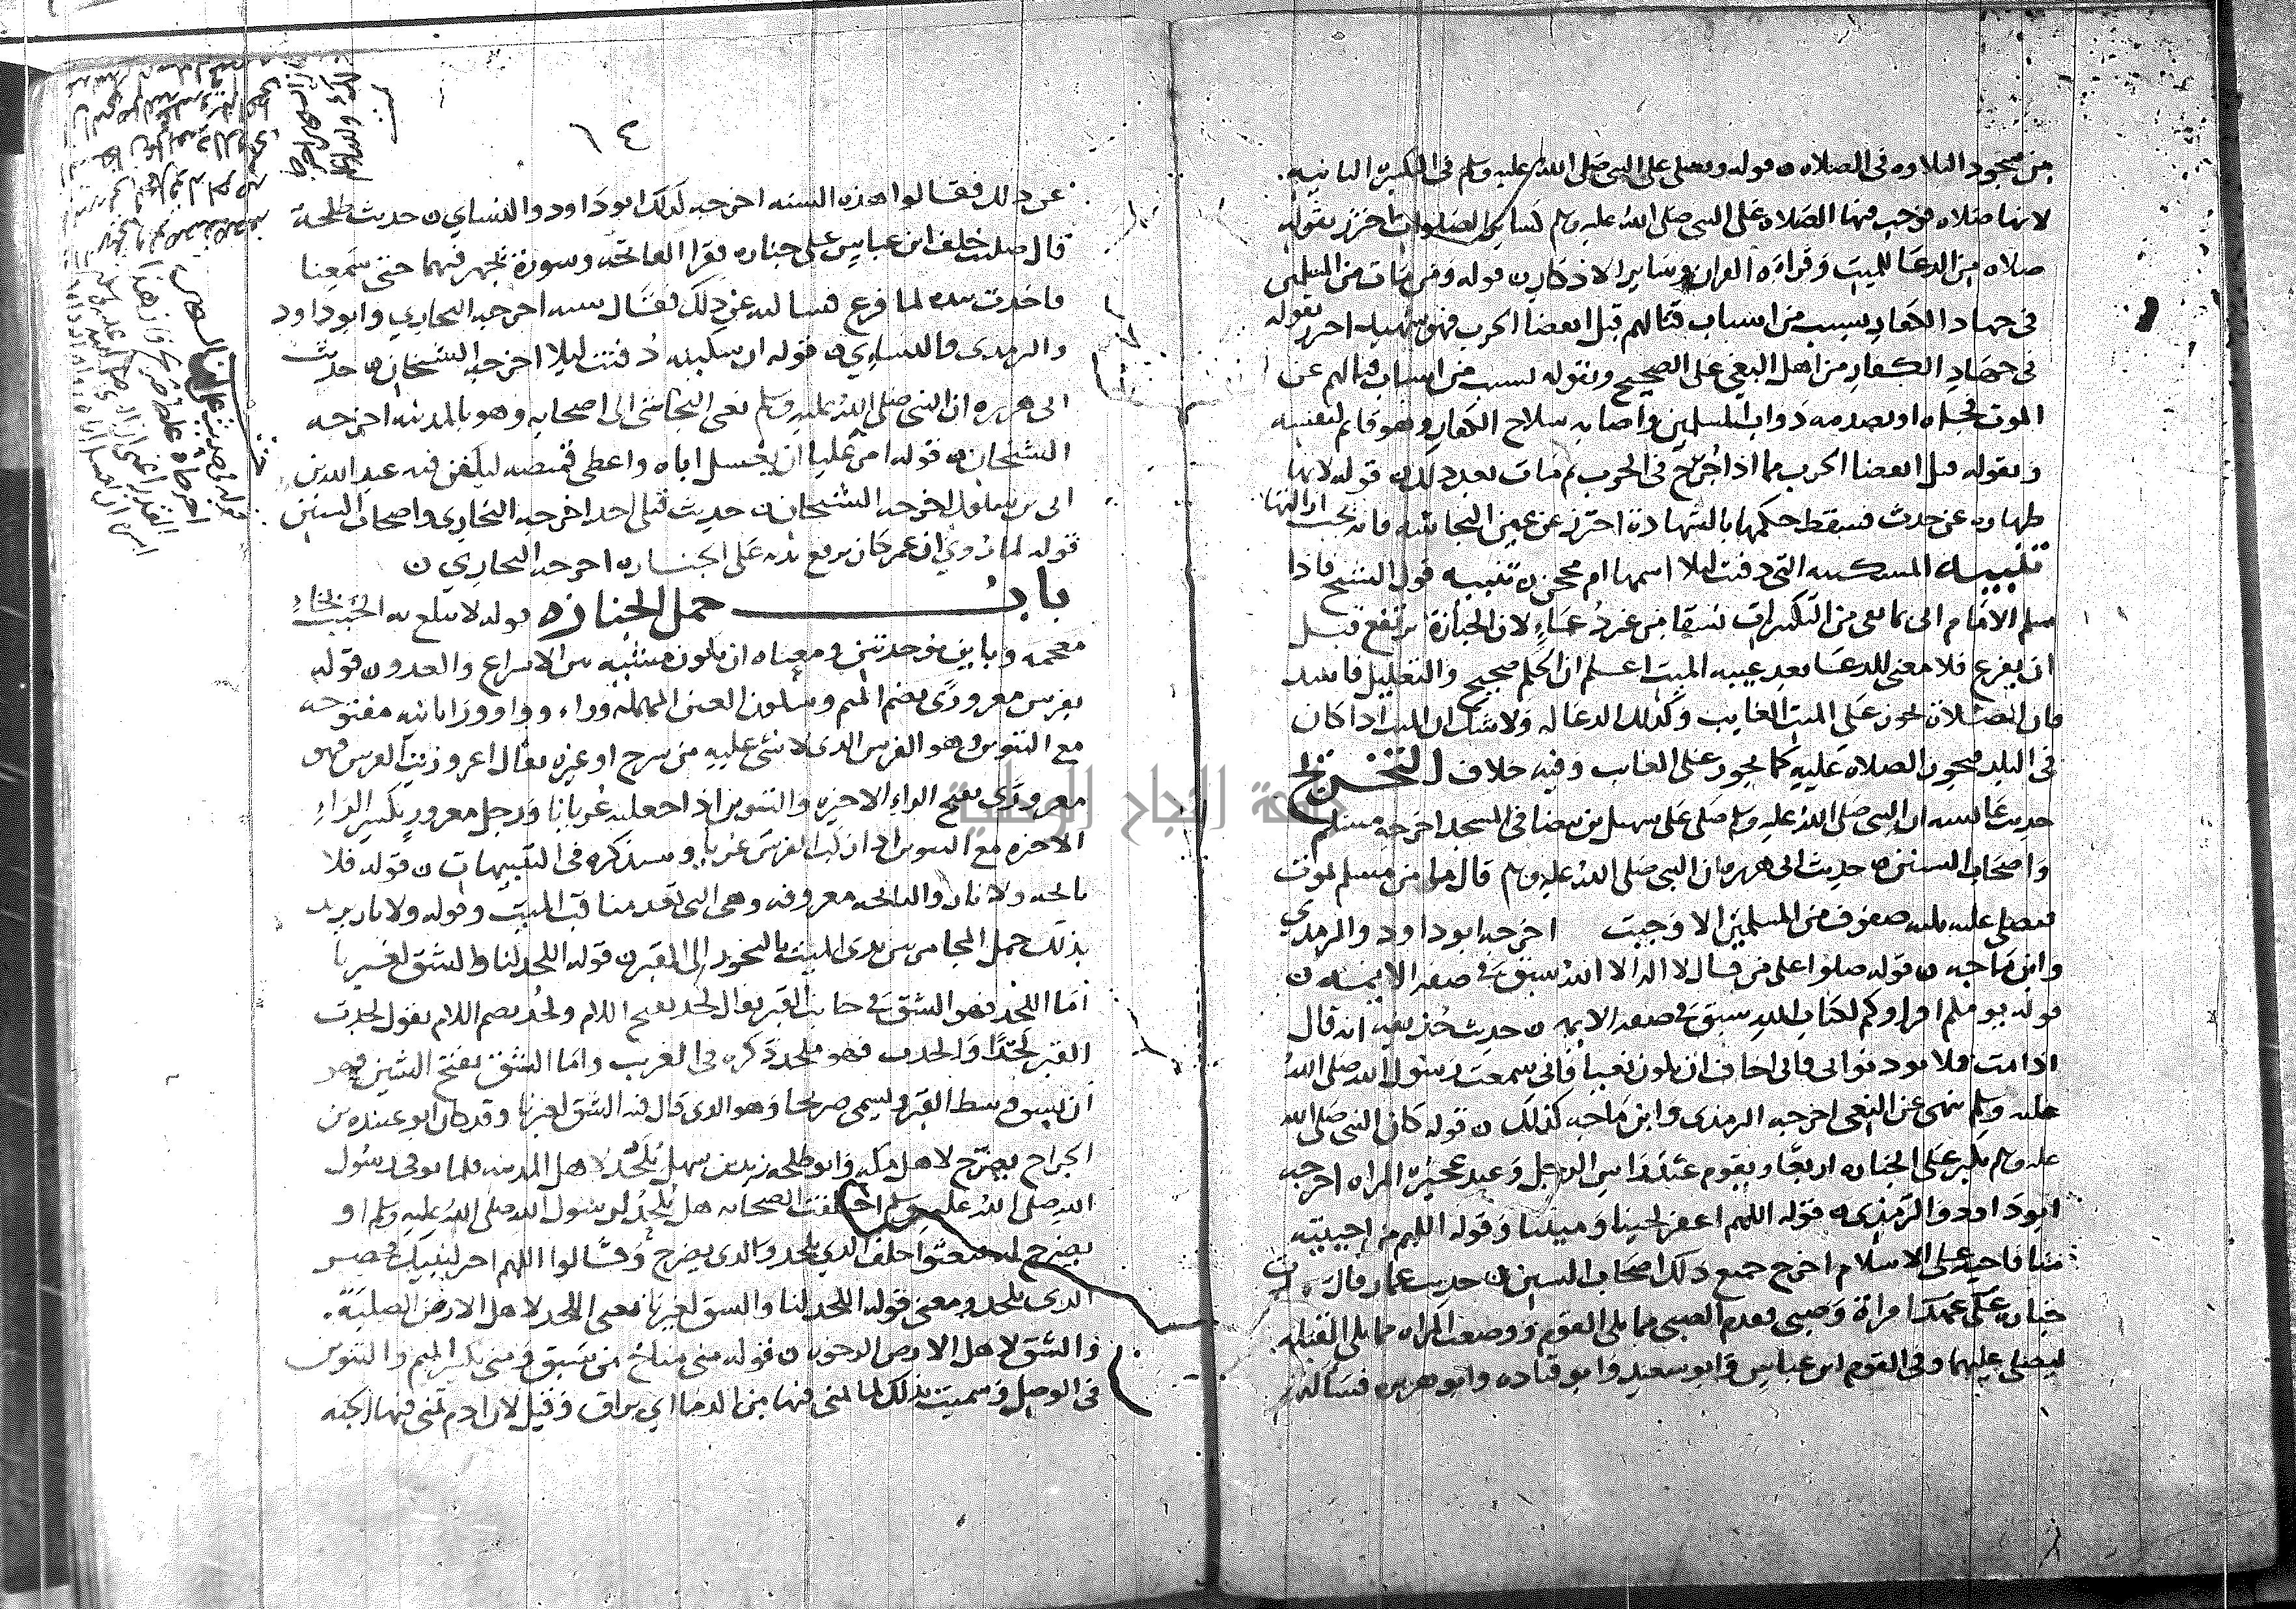 من سجود التلاوه فى الصلاه ن قوله ويصلى على النبى صلى الله عليه وسلم فى التكبيرة الثانيه
لانها صلاه فوجب فيها الصلاه على النبى صلى الله عليه وسلم كساير الصلوات احترز بقوله
صلاه من الدعا للميت وقراءة القران وساير الاذكار ن قوله ومن مات من المسلمين
فى جهاد الكفار بسبب من اسباب قتالهم قبل انقضا الحرب فهو شهيد احترز بقوله
فى جهاد الكفار من اهل البغي على الصحيح وبقوله بسبب من اسباب قتالهم عن
الموت فجاه او بصدمه دواب المسلمين واصابه سلاح الكفار وهو قايم لنفسه
وبقوله قبل انقضا الحرب مما اذا جُرح فى الحرب ثم مات بعد ذلك ن قوله لانها
طهاره عن حدث فسقط حكمها بالشهادة احترز عن عين النجاسه فانه يجب ازالتها
تنبيه المسكينه التى دفنت ليلا اسمها ام محجن ن تنبيه قول الشيخ فاذا
سلم الامام اتى بما بقى من التكبيرات نسقا من غير دُعاءٍ لان الجنازة ترفع قبل
ان يفرغ فلا معنى للدعا بعد غيبه الميت اعلم ان الحكم صحيح والتعليل فاسد
فان الصلاة تجوز على الميت الغايب وكذلك الدعا له ولا شك ان الميت اذا كان
فى البلد فيجوز الصلاه عليه كما يجوز على الغايب وفيه خلاف التخريج
حديث عايشه ان النبى صلى الله عليه وسلم صلى على سهيل بن بيضا فى المسجد اخرجه مسلم
واصحاب السنن ن حديث ابى هريره ان النبى صلى الله عليه وسلم قال ما من مسلم يموت
فيصلى عليه ثلثه صفوف من المسلمين الا وجبت اخرجه ابو داود والترمذي
وابن ماجه ن قوله صلوا على من قال لا اله الا الله سبق فى صفه الايمه ن
قوله يومكم اقراوكم لكتاب الله سبق فى صفه الايمه ن حديث حُذيفه انه قال
اذا مت فلا توذنوا بى فانى اخاف ان يكون نعيا فانى سمعت رسول الله صلى الله
عليه وسلم ينهى عن النعى اخرجه الترمذى وابن ماجه كذلك ن قوله كان النبى صلى الله
عليه وسلم يكبر على الجنازه اربعًا ويقوم عند راس الرجل وعند عجيزة المراه اخرجه
ابو داود والترمذى ن قوله اللهم اغفر لحينا وميتنا وقوله اللهم من احييته
منا فاحيه على الاسلام اخرج جميع ذلك اصحاب السنن ن حديث عمار قال
جنازه امراة وصبى فقدم الصبى مما يلى القوم ووضعت المراه مما يلى القبله
ليصلى عليهما وفى القوم ابن عباس وابو سعيد وابو قتاده وابو هريره فسالتهم
١٤
عن ذلك فقالوا هذه السنه اخرجه كذلك ابو داود والنساي ن حديث طلحة
قال صليت خلف ابن عباس على جنازه فقرا الفاتحه وسورة يجهر فيهما حتى سمعنا
فاخذت بيده لما فرغ فسالته عن ذلك فقال سنه اخرجه البخاري وابو داود
والترمذى والنساي ن قوله ان مسكينه دُفنت ليلا اخرجه الشيخان ن حديث
ابى هريره ان النبى صلى الله عليه وسلم نعى النجاشى الى اصحابه وهو بالمدينه اخرجه
الشيخان ن قوله امر عليا ان يغسل اباه واعطى قميصه ليكفن فيه عبد الله بن
ابى بن سلول اخرجه الشيخان ن حديث قتلى احد اخرجه البخارى واصحاب السنن
قوله لما رُوي ان عمر كان يرفع يديه على الجنازه اخرجه البخاري ن
باب حمل الجنازه قوله لا يبلغ به الخبب بخاءٍ
معجمه وباين موحدتين ومعناه ان يكون مشيه بين الاسراع والعدو ن قوله
بفرس معرورًى بضم الميم وسكون العين المهمله وراء وواو وراء ثانيه مفتوحه
مع التنوين وهو الفرس الذى لا شى عليه من سرج او غيره يقال اعروريت الفرس فهو
معرورًى بفتح الراء الاخيره والتنوين اذا جعلته عُريانا ورجل معرورٍ بكسر الراءِ
الاخره مع التنوين اذا ركب الفرس عُريا وسنذكره فى التنبيهات ن قوله فلا
نايحه ولا نار والنايحه معروفه وهى التى تعد مناقب الميت وقوله ولا نار يريد
بذلك حمل المجامر بين يدى الميت بالبخور الى القبر ن قوله اللحد لنا والشق لغيرنا
اما اللحد فهو الشق فى جانب القبر يقال لحد بفتح اللام ولُحد بضم اللام يقول لحدت
القبر لحدًا والحدت فهو ملحد ذكره فى المغرب واما الشق بفتح الشين فهو
ان يشق وسط القبر ويسمى ضريحا وهو الذى قال فيه الشق لغيرنا وقد كان ابو عبيده بن
الجراح يضرح لاهل مكه وابو طلحه زيد بن سهل يُلحد لاهل المدينه فلما توفى رسول
الله صلى الله عليه وسلم اختلفت الصحابه هل يُلحد لرسول الله صلى الله عليه وسلم او
يضرح له فبعثوا خلف الذى يلحد والذى يضرح وقالوا اللهم اختر لنبيك فحضر
الذى يلحد ومعنى قوله اللحد لنا والشق لغيرنا يعنى اللحد لاهل الارض الصلبة
والشق لاهل الارض الرخوه ن قوله منى مناخ من سبق ومنى بكسر الميم والتنوين
فى الوصل وسميت بذلك لما يمنى فيها من الدما اى يراق وقيل لان ادم تمنى فيها الجنه
جامعة النجاح الوطنية